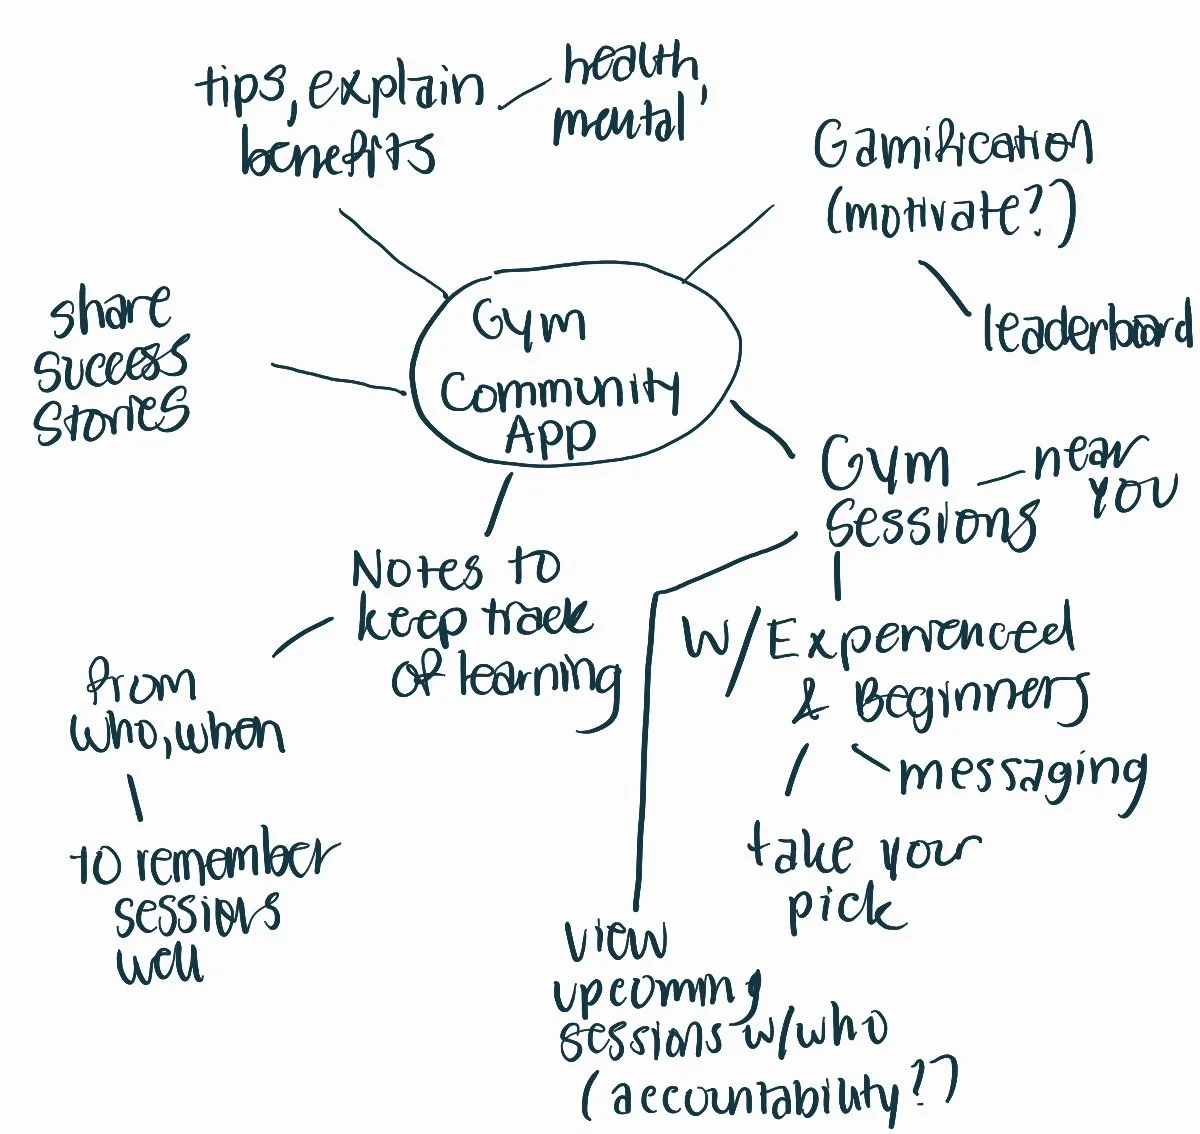 tips, explain
benefits
health,
mental
Gamification
(motivate?)
leaderboard
share
success
stories
Gym
Community
App
Gym
sessions
near
you
Notes to
keep track
of learning
from
who, when
to remember
sessions
well
w/Experienced
& Beginners
messaging
take your
pick
view
upcoming
sessions w/who
(accountability?)